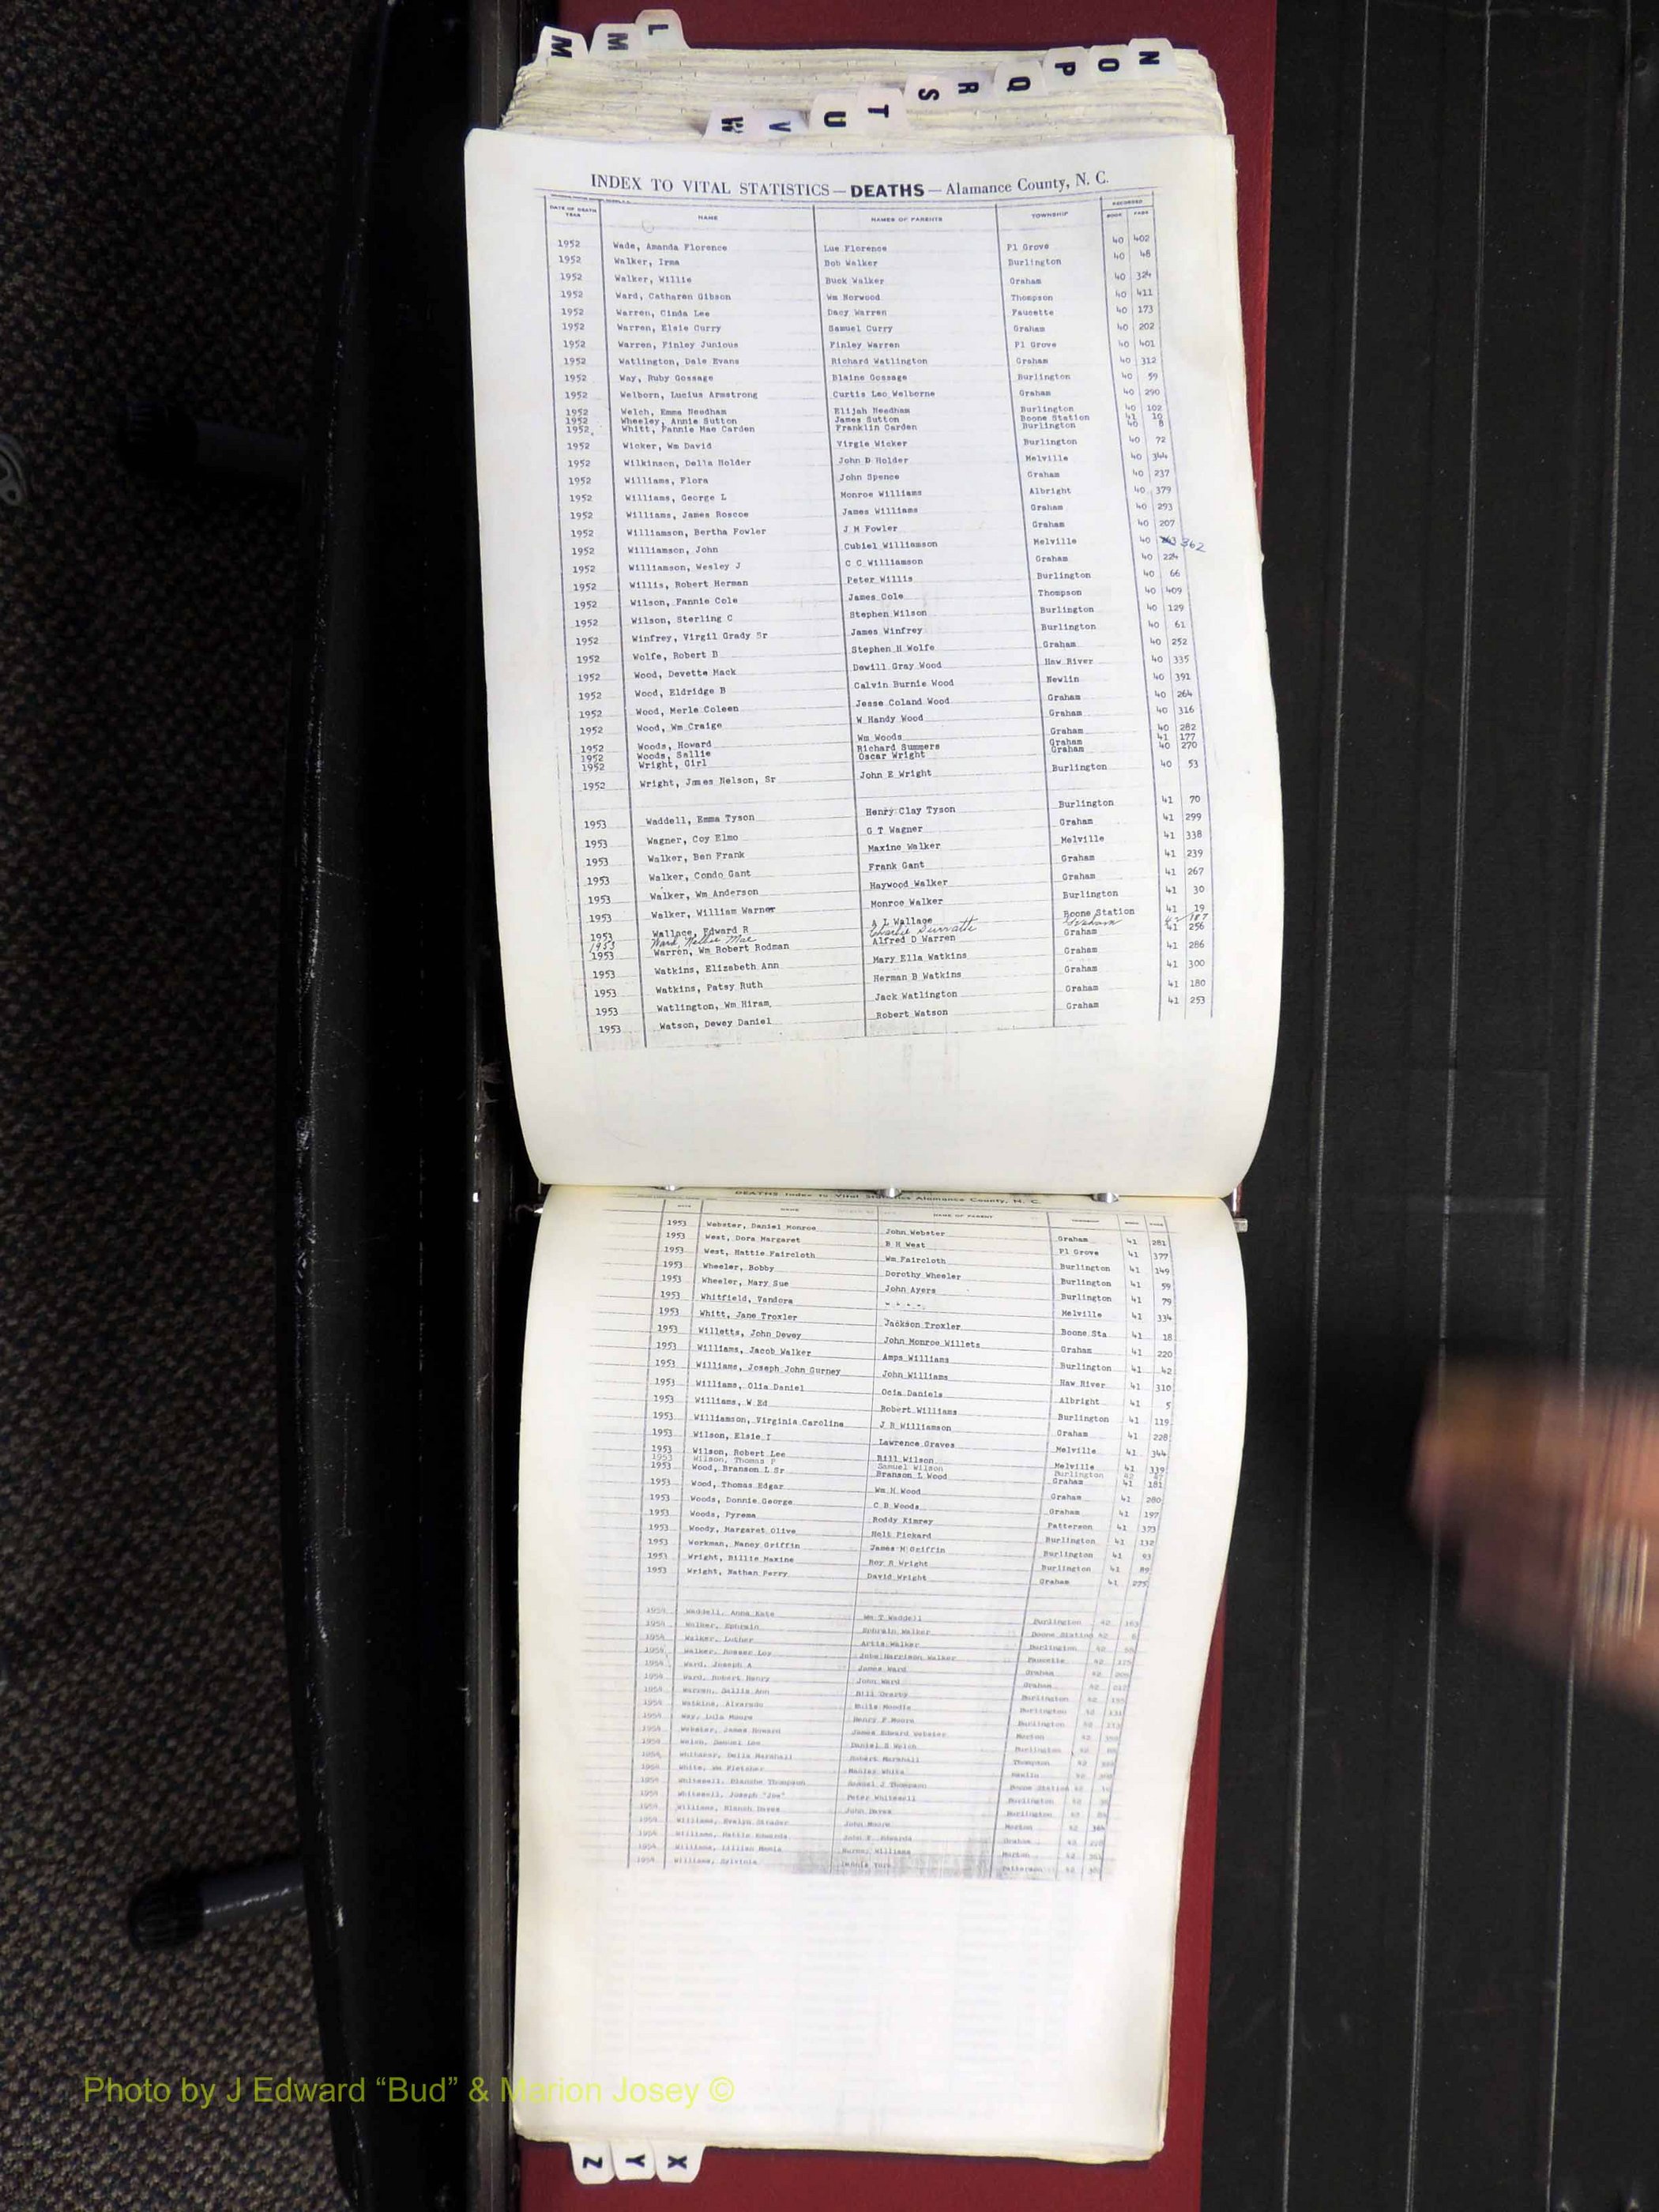 L
M
M
N
O
P
Q
R
S
T
U
V
W
INDEX TO VITAL STATISTICS — DEATHS — Alamance County, N. C.
DATE OF DEATH YEAR NAME NAMES OF PARENTS TOWNSHIP RECORDED BOOK PAGE
1952 Wade, Amanda Florence Lue Florence Pl Grove 40 402
1952 Walker, Irma Bob Walker Burlington 40 48
1952 Walker, Willie Buck Walker Graham 40 324
1952 Ward, Catharen Gibson Wm Norwood Thompson 40 411
1952 Warren, Cinda Lee Dacy Warren Faucette 40 173
1952 Warren, Elsie Curry Samuel Curry Graham 40 202
1952 Warren, Finley Junious Finley Warren Pl Grove 40 401
1952 Watlington, Dale Evans Richard Watlington Graham 40 312
1952 Way, Ruby Gossage Blaine Gossage Burlington 40 59
1952 Welborn, Lucius Armstrong Curtis Leo Welborne Graham 40 290
1952 Welch, Emma Needham Elijah Needham Burlington 40 102
1952 Wheeley, Annie Sutton James Sutton Boone Station 41 10
1952 Whitt, Fannie Mae Carden Franklin Carden Burlington 40 8
1952 Wicker, Wm David Virgie Wicker Burlington 40 72
1952 Wilkinson, Della Holder John D Holder Melville 40 344
1952 Williams, Flora John Spence Graham 40 237
1952 Williams, George L Monroe Williams Albright 40 379
1952 Williams, James Roscoe James Williams Graham 40 293
1952 Williamson, Bertha Fowler J M Fowler Graham 40 207
1952 Williamson, John Cubiel Williamson Melville 40 362
1952 Williamson, Wesley J C C Williamson Graham 40 224
1952 Willis, Robert Herman Peter Willis Burlington 40 66
1952 Wilson, Fannie Cole James Cole Thompson 40 409
1952 Wilson, Sterling C Stephen Wilson Burlington 40 129
1952 Winfrey, Virgil Grady Sr James Winfrey Burlington 40 61
1952 Wolfe, Robert B Stephen H Wolfe Graham 40 252
1952 Wood, Devette Mack Dewill Gray Wood Haw River 40 335
1952 Wood, Eldridge B Calvin Burnie Wood Newlin 40 391
1952 Wood, Merle Coleen Jesse Coland Wood Graham 40 264
1952 Wood, Wm Craige W Handy Wood Graham 40 316
1952 Woods, Howard Wm Woods Graham 40 282
1952 Woods, Sallie Richard Summers Graham 41 177
1952 Wright, Girl Oscar Wright Graham 40 270
1952 Wright, James Nelson, Sr John E Wright Burlington 40 53
1953 Waddell, Emma Tyson Henry Clay Tyson Burlington 41 70
1953 Wagner, Coy Elmo G T Wagner Graham 41 299
1953 Walker, Ben Frank Maxine Walker Melville 41 338
1953 Walker, Condo Gant Frank Gant Graham 41 239
1953 Walker, Wm Anderson Haywood Walker Graham 41 267
1953 Walker, William Warner Monroe Walker Burlington 41 30
1953 Wallace, Edward R A L Wallace Boone Station 41 19
1953 Ward, Nellie Mae Charlie Graham 42 187
1953 Warren, Wm Robert Rodman Alfred D Warren Graham 41 256
1953 Watkins, Elizabeth Ann Mary Ella Watkins Graham 41 286
1953 Watkins, Patsy Ruth Herman B Watkins Graham 41 300
1953 Watlington, Wm Hiram Jack Watlington Graham 41 180
1953 Watson, Dewey Daniel Robert Watson Graham 41 253
DEATHS Index to Vital Statistics Alamance County, N. C.
DATE NAME NAME OF PARENT TOWNSHIP BOOK PAGE
1953 Webster, Daniel Monroe John Webster Graham 41 281
1953 West, Dora Margaret B H West Pl Grove 41 377
1953 West, Hattie Faircloth Wm Faircloth Burlington 41 149
1953 Wheeler, Bobby Dorothy Wheeler Burlington 41 59
1953 Wheeler, Mary Sue John Ayers Burlington 41 79
1953 Whitfield, Vandora - - - - Melville 41 334
1953 Whitt, Jane Troxler Jackson Troxler Boone Sta 41 18
1953 Willetts, John Dewey John Monroe Willets Graham 41 220
1953 Williams, Jacob Walker Amps Williams Burlington 41 42
1953 Williams, Joseph John Gurney John Williams Haw River 41 310
1953 Williams, Olia Daniel Ocia Daniels Albright 41 5
1953 Williams, W Ed Robert Williams Burlington 41 119
1953 Williamson, Virginia Caroline J R Williamson Graham 41 228
1953 Wilson, Elsie I Lawrence Graves Melville 41 344
1953 Wilson, Robert Lee Bill Wilson Melville 41 339
1953 Wilson, Thomas P Samuel Wilson Burlington 42
1953 Wood, Branson L Sr Branson L Wood Graham 41 181
1953 Wood, Thomas Edgar Wm H Wood Graham 41 280
1953 Woods, Donnie George C B Woods Graham 41 197
1953 Woods, Pyrema Boddy Kimrey Patterson 41 373
1953 Woody, Margaret Olive Holt Pickard Burlington 41 132
1953 Workman, Nancy Griffin James M Griffin Burlington 41 93
1953 Wright, Billie Maxine Roy A Wright Burlington 41 89
1953 Wright, Nathan Perry David Wright Graham 41 275
1954 Waddell, Anna Kate Wm T Waddell Burlington 42 163
1954 Walker, Ephraim Ephraim Walker Boone Station 42
1954 Walker, Luther Artis Walker Burlington 42
1954 Walker, Rosser Loy John Harrison Walker Faucette 42
1954 Ward, Joseph A James Ward Graham 42
1954 Ward, Robert Henry John Ward Graham 42
1954 Warren, Sallie Ann Bill Burlington 42
1954 Watkins, Alvarado Burlington 42
1954 Way, Lula Moore Henry P Moore Burlington 42
1954 Webster, James Howard James Edward Webster Morton 42
1954 Welch, Samuel Lee Daniel S Welch Burlington 42
1954 Whitaker, Delia Marshall Robert Marshall Thompson 42
1954 White, Wm Fletcher White Newlin 42
1954 Whitesell, Blanche Thompson Samuel J Thompson Boone Station 42
1954 Whitesell, Joseph "Joe" Peter Whitesell Burlington 42
1954 Williams, Blanch Dawes John Dawes Burlington 42
1954 Williams, Evelyn Strader John Moore Morton 42
1954 Williams, Hattie Edwards John Edwards Graham 42
1954 Williams, Lillian Williams Morton 42
1954 Williams, Sylvinia York Patterson 42
Photo by J Edward “Bud” & Marion Josey ©
Z
Y
X